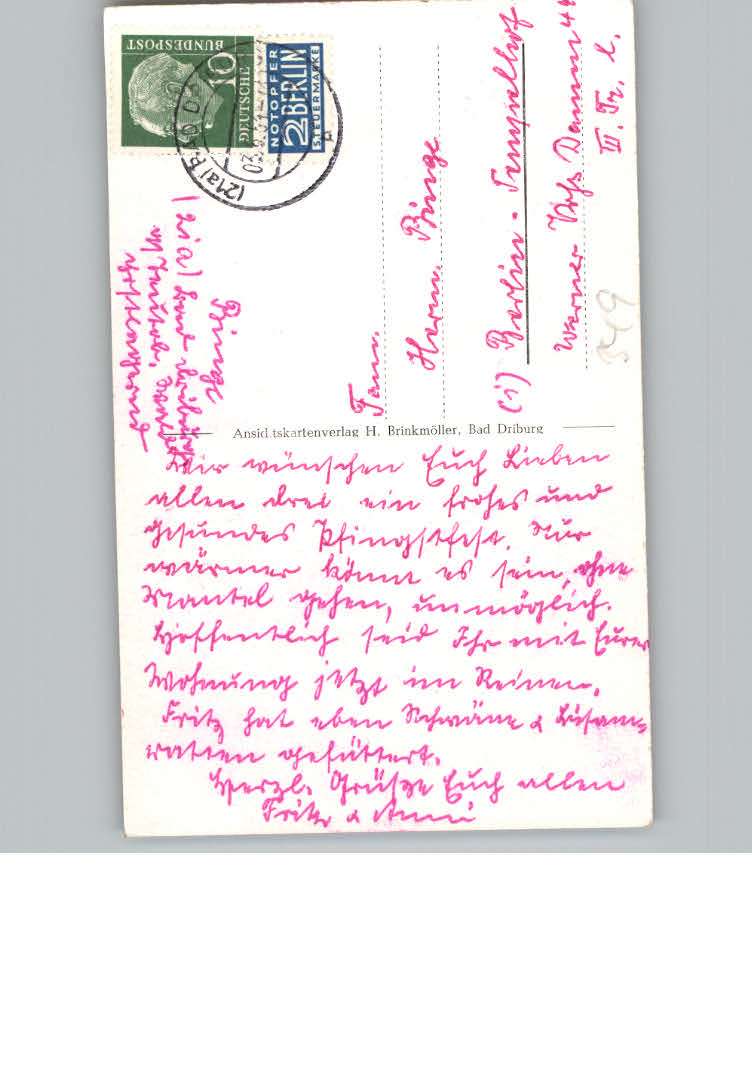 BUNDESPOST
10
DEUTSCHE
NOTOPFER
2 BERLIN
STEUERMARKE
(21a) BAD
03.
Binge
(21a) Bad Driburg
postlagernd
Fam.
Herm. Binge
(1) Berlin-Tempelhof
Werner Voß Damm 44
III. Tr. l.
349
Ansichtskartenverlag H. Brinkmöller, Bad Driburg
Wir wünschen Euch Lieben
allen drei ein frohes und
gesundes Pfingstfest. Nur
wärmer könnt es sein, ohne
Mantel gehen, unmöglich.
Hoffentlich seid Ihr mit Eurer
Wohnung jetzt im Reinen.
Fritz hat eben Schwäne & Bisam-
ratten gefüttert.
Herzl. Grüße Euch allen
Fritz & Anni